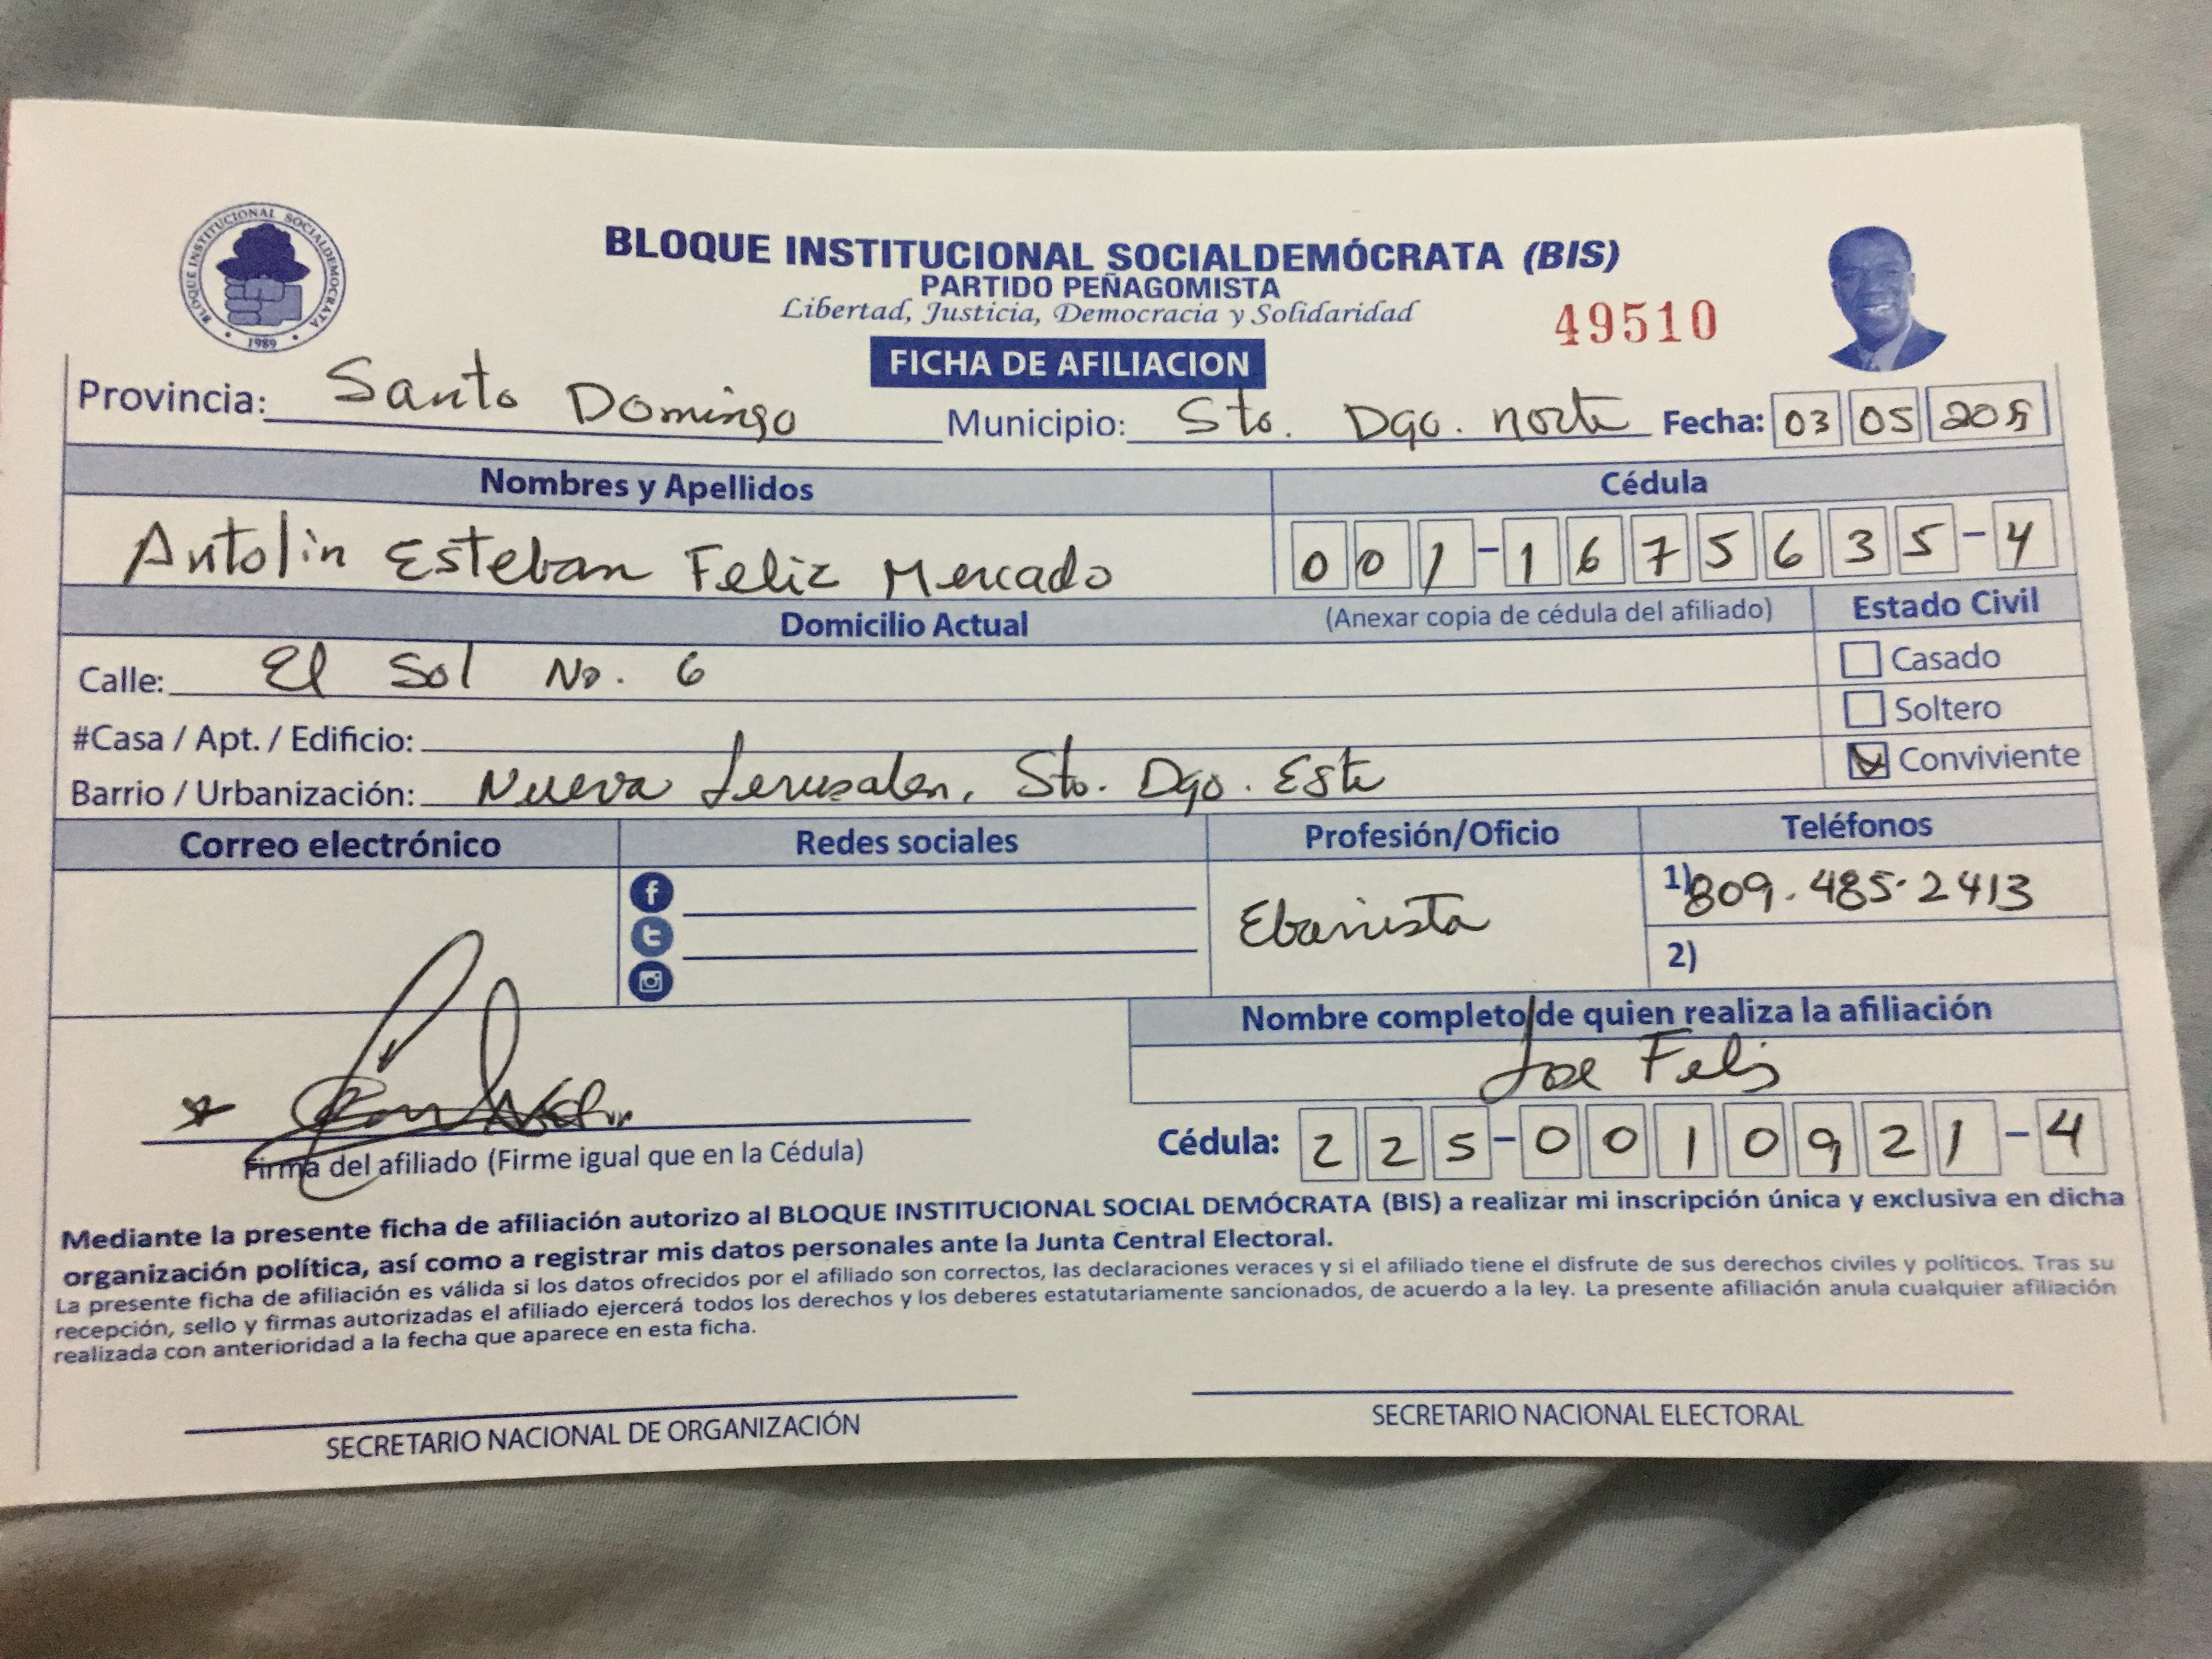 BLOQUE INSTITUCIONAL SOCIALDEMOCRATA
1989
BLOQUE INSTITUCIONAL SOCIALDEMÓCRATA (BIS)
PARTIDO PEÑAGOMISTA
Libertad, Justicia, Democracia y Solidaridad
49510
FICHA DE AFILIACION
Provincia: Santo Domingo Municipio: Sto. Dgo. norte Fecha: 03 05
Nombres y Apellidos Cédula
Antolin Esteban Feliz Mercado 001-1675635-4
Domicilio Actual (Anexar copia de cédula del afiliado) Estado Civil
Calle: El Sol No. 6 Casado
#Casa / Apt. / Edificio: Soltero
Barrio / Urbanización: Nueva Jerusalen, Sto. Dgo. Este Conviviente
Correo electrónico Redes sociales Profesión/Oficio Teléfonos
Ebanista 1) 809.485.2413
2)
Nombre completo de quien realiza la afiliación
Jose Feliz
Firma del afiliado (Firme igual que en la Cédula) Cédula: 225-0010921-4
Mediante la presente ficha de afiliación autorizo al BLOQUE INSTITUCIONAL SOCIAL DEMÓCRATA (BIS) a realizar mi inscripción única y exclusiva en dicha
organización política, así como a registrar mis datos personales ante la Junta Central Electoral.
La presente ficha de afiliación es válida si los datos ofrecidos por el afiliado son correctos, las declaraciones veraces y si el afiliado tiene el disfrute de sus derechos civiles y políticos. Tras su
recepción, sello y firmas autorizadas el afiliado ejercerá todos los derechos y los deberes estatutariamente sancionados, de acuerdo a la ley. La presente afiliación anula cualquier afiliación
realizada con anterioridad a la fecha que aparece en esta ficha.
SECRETARIO NACIONAL DE ORGANIZACIÓN SECRETARIO NACIONAL ELECTORAL